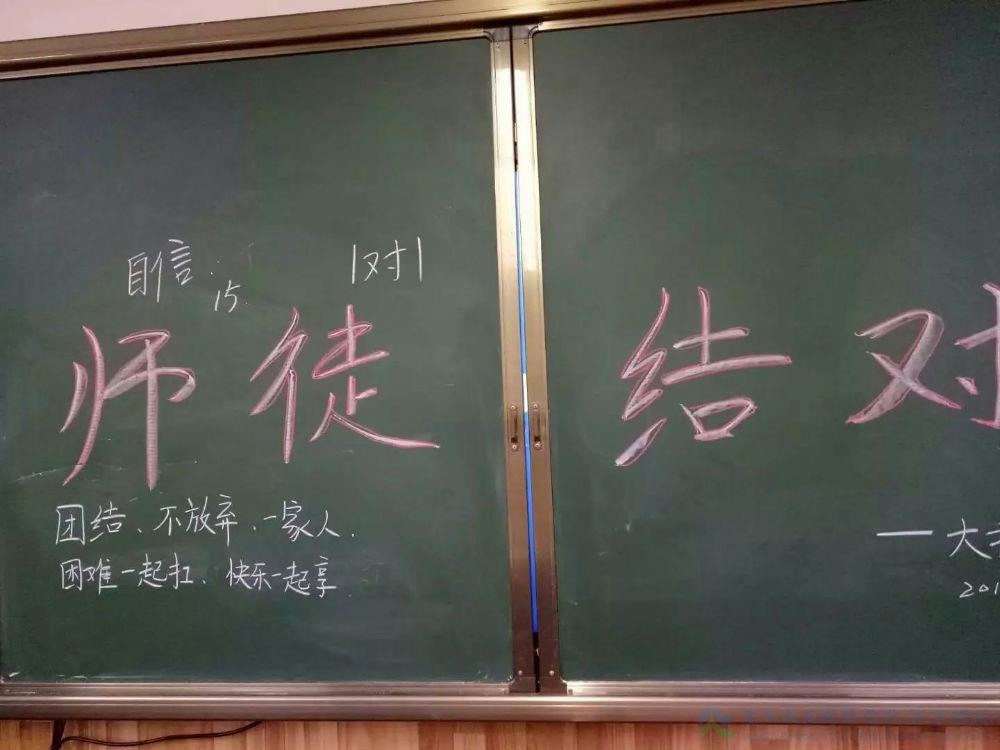 自信
1对1
15.
师徒
结对
团结、不放弃、一家人.
困难一起扛、快乐一起享
一大
201